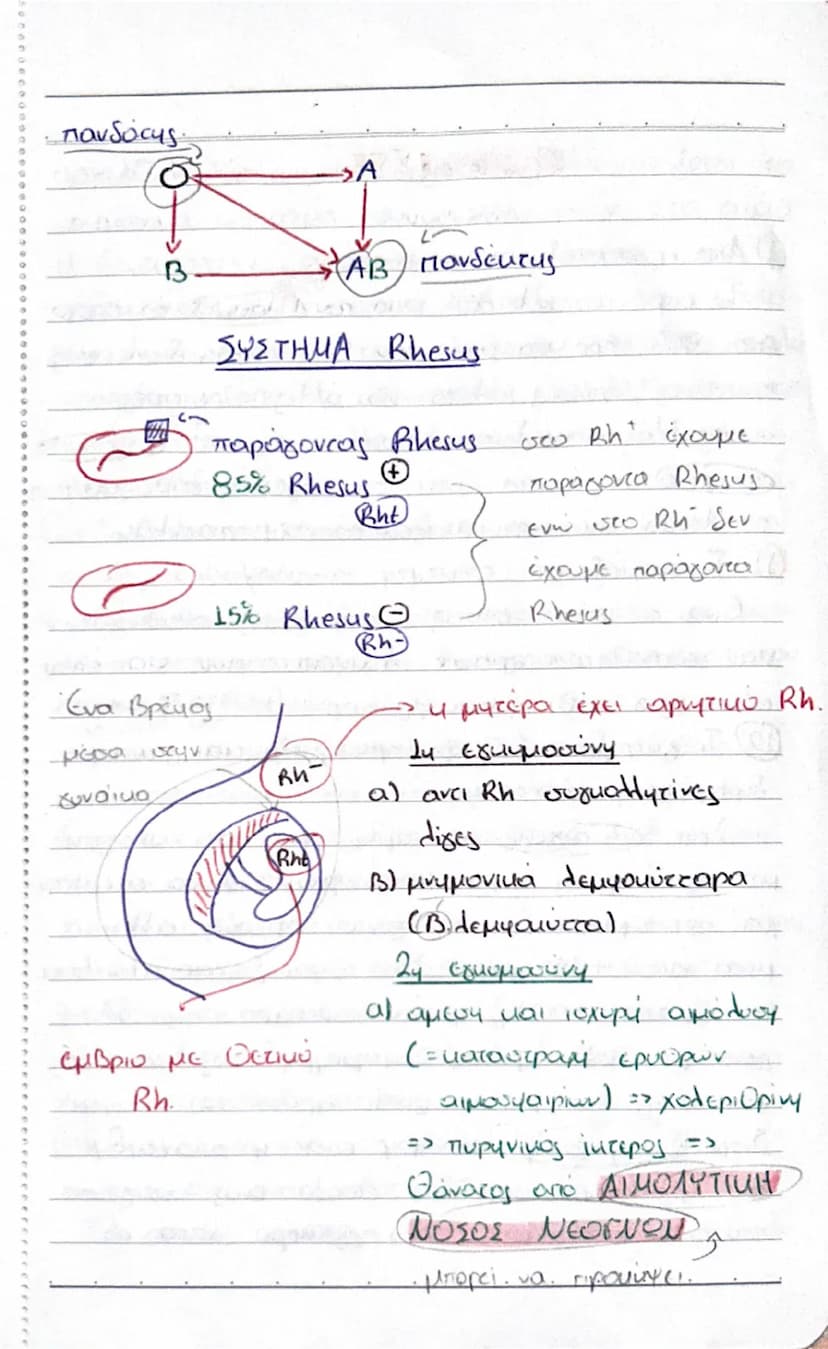 πανδότης
O → A
B → AB πανδέκτης
ΣΥΣΤΗΜΑ Rhesus
παράγοντας Rhesus
85% Rhesus +
Rh+
15% Rhesus -
Rh-
στο Rh+ έχουμε
παράγοντα Rhesus
ενώ στο Rh- δεν
έχουμε παράγοντα
Rhesus
Ένα βρέφος
μέσα στην
γυναίκα
Rh-
Rh+
έμβριο με θετικό
Rh.
→ η μητέρα έχει αρνητικό Rh.
1η εγκυμοσύνη
α) αντι Rh συγκολλητίνες
λίγες
β) μνημονικά λεμφοκύτταρα
(Β λεμφοκύττα)
2η εγκυμοσύνη
α) άμεση και ισχυρή αιμόλυση
(=καταστραφή ερυθρών
αιμοσφαιρίων) => χολεριθρίνη
=> πυρηνικός ίκτερος =>
θάνατος από ΑΙΜΟΛΥΤΙΚΗ
ΝΟΣΟΣ ΝΕΟΓΝΩΝ
μπορεί να προκύψει.